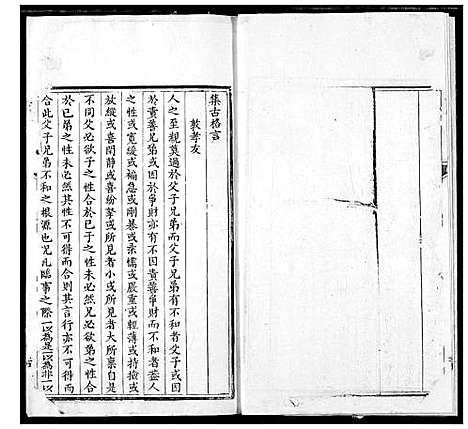 集古格言
敦孝友
人之至親莫過於父子兄弟而父子兄弟有不和者父子或因
於責善兄弟或因於爭財亦有不因責善爭財而不和者蓋人
之性或寬緩或褊急或剛暴或柔懦或嚴重或輕薄或持撿或
放縱或喜閑靜或喜紛拏或所見者小或所見者大所禀自是
不同父必欲子之性合於己子之性未必然兄必欲弟之性合
於己弟之性未必然其性不可得而合則其言行亦不可得而
合此父子兄弟不和之根源也况凡臨事之際一以為是一以為非一以